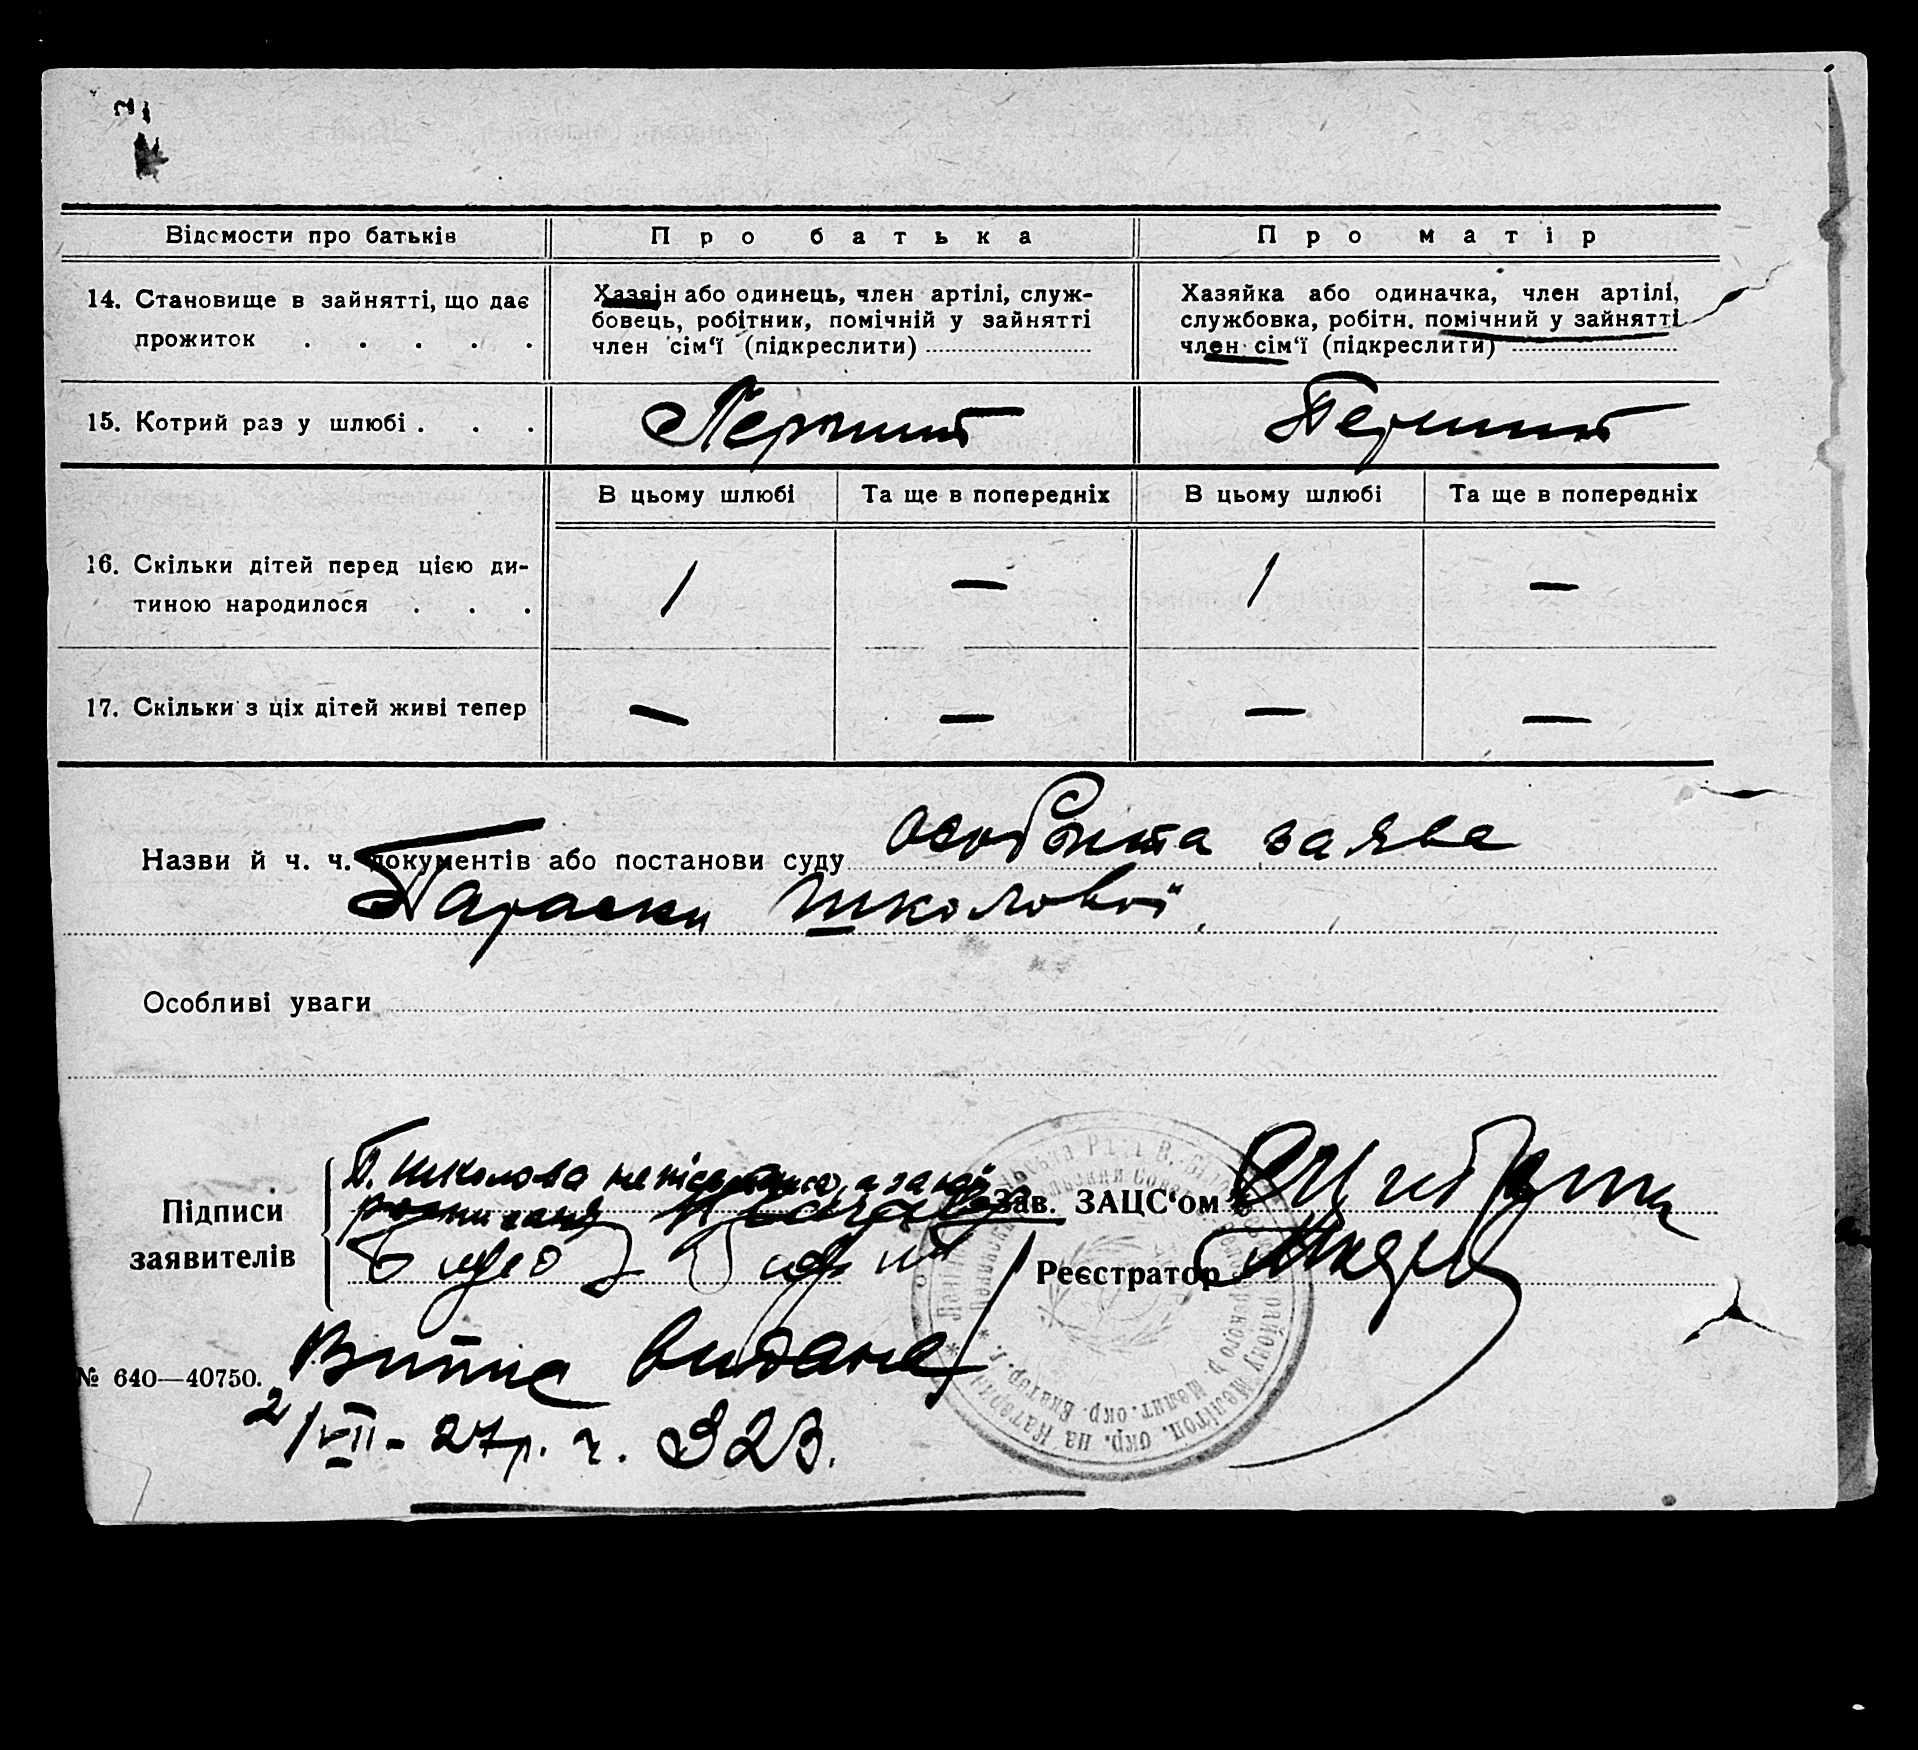 Відомости про батьків
Про батька
Про матір
14. Становище в зайнятті, що дає прожиток . . . . .
Хазяїн або одинець, член артілі, служ-
бовець, робітник, помічній у зайнятті
член сім‘ї (підкреслити)
Хазяйка або одиначка, член артілі,
службовка, робітн. помічний у зайнятті
член сім‘ї (підкреслити)
15. Котрий раз у шлюбі . . .
Перший
Перший
В цьому шлюбі
Та ще в попередніх
В цьому шлюбі
Та ще в попередніх
16. Скільки дітей перед цією ди-
тиною народилося . . .
1
—
1
—
17. Скільки з ціх дітей живі тепер
—
—
—
—
Назви й ч. ч. документів або постанови суду особиста заява
Параски Школової
Особливі уваги
Підписи
заявителів
П. Школова
Зав. ЗАЦС‘ом
Реєстратор
№ 640—40750.
Витис видана
2/VII - 27 р. ч. 323.